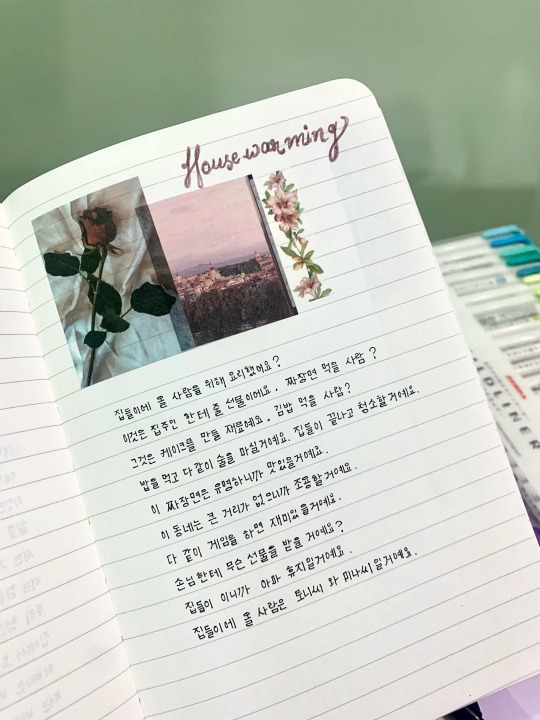 House warming
집들이에 올 사람을 위해 요리했어요?
이것은 집주인 한테 줄 선물이에요. 짜장면 먹을 사람?
그것은 케이크를 만들 재료예요. 김밥 먹을 사람?
밥을 먹고 다같이 술을 마실거예요. 집들이 끝나고 청소할거예요.
이 짜장면은 유명하니까 맛있을거예요.
이 동네는 큰 거리가 없으니까 조용할거예요.
다 같이 게임을 하면 재미있을거예요.
손님한테 무슨 선물을 받을 거예요?
집들이 이니까 아마 휴지일거예요.
집들이에 올 사람은 토니씨 와 미나씨일거예요.
LDLINER